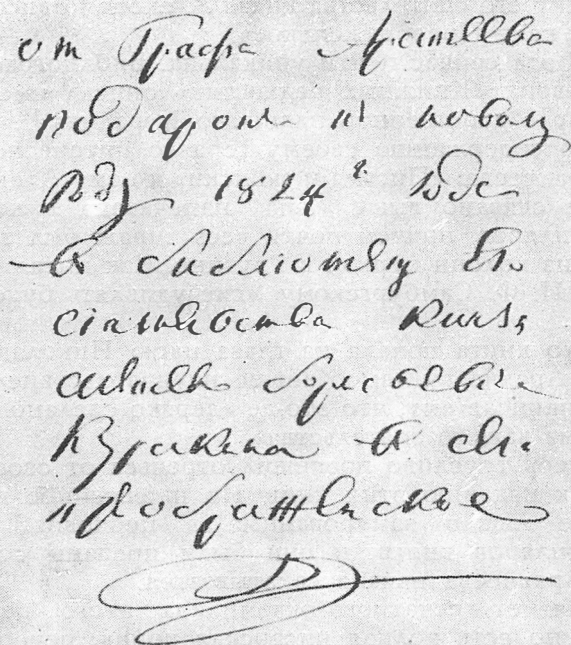 от Графа Аракчеева
подарокъ къ новому
году 1824 г. года
въ библиотеку Его
сіятельства князя
алексѣя борисовича
Куракина въ село
преображенское